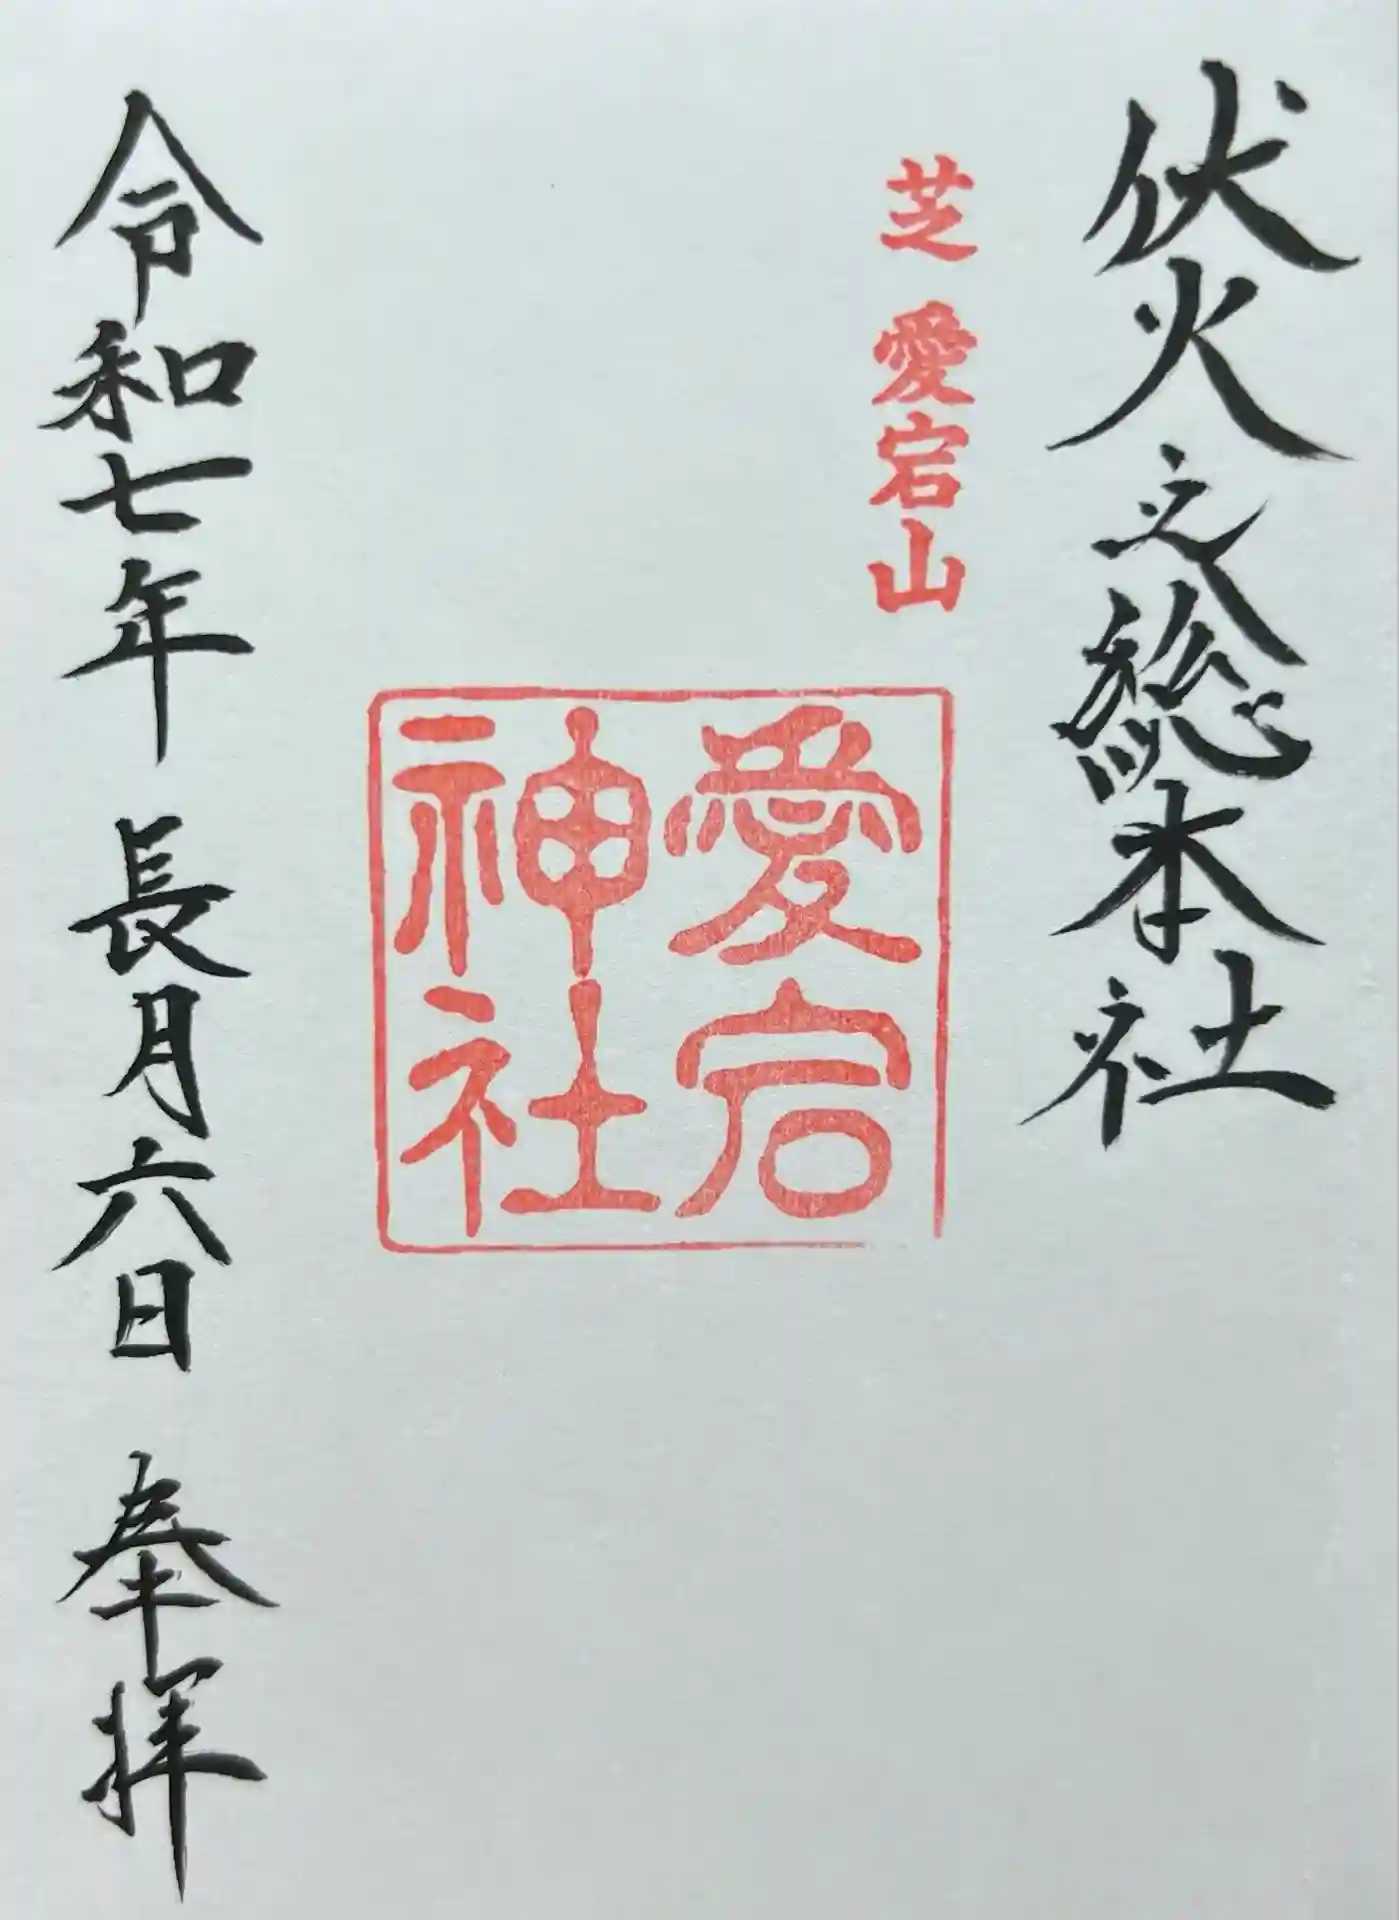 伏火之総本社
芝 愛宕山
愛宕
神社
令和七年 長月六日 奉拝